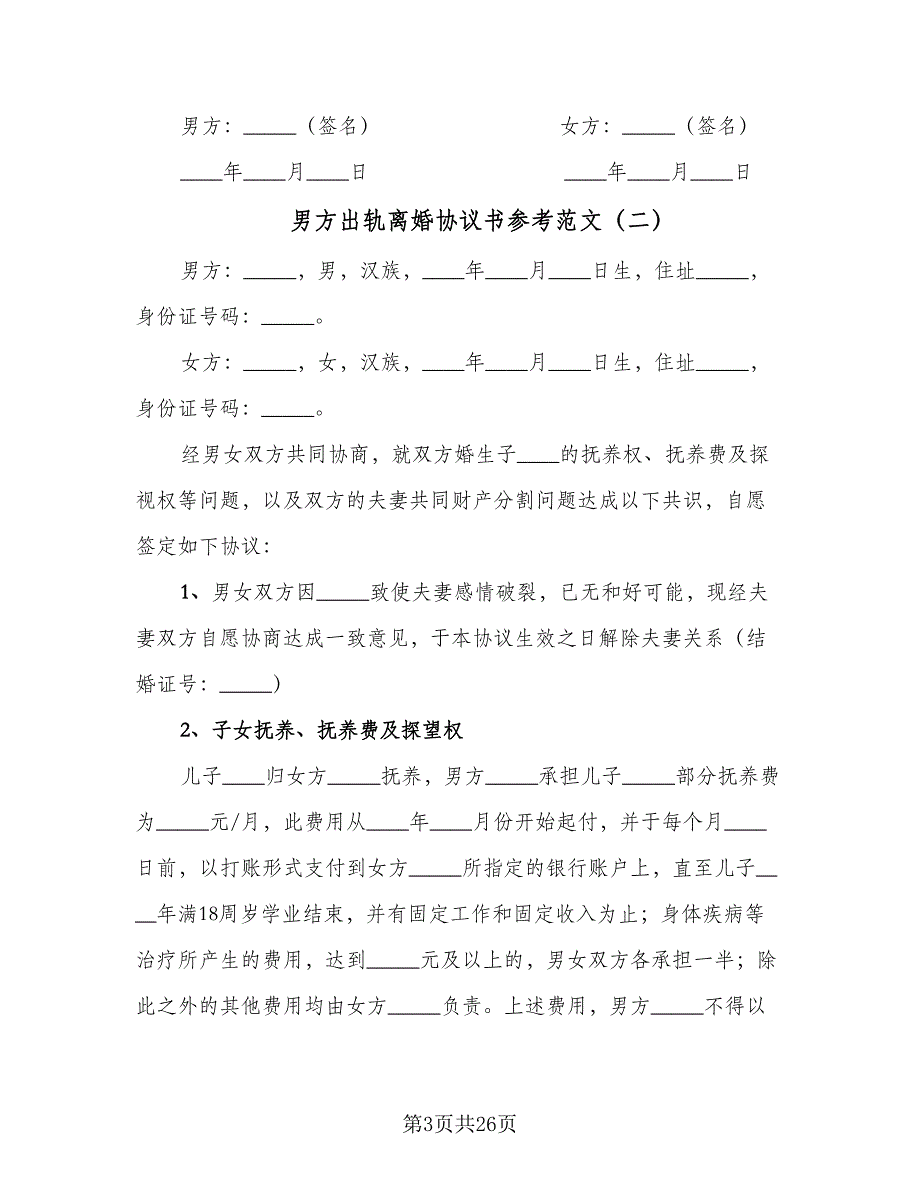 男方：_____（签名） 女方：_____（签名）
____年____月____日 ____年____月____日
男方出轨离婚协议书参考范文（二）
男方：_____，男，汉族，____年____月____日生，住址_____，
身份证号码：_____。
女方：_____，女，汉族，____年____月____日生，住址_____，
身份证号码：_____。
经男女双方共同协商，就双方婚生子____的抚养权、抚养费及探
视权等问题，以及双方的夫妻共同财产分割问题达成以下共识，自愿
签定如下协议：
1、男女双方因_____致使夫妻感情破裂，已无和好可能，现经夫
妻双方自愿协商达成一致意见，于本协议生效之日解除夫妻关系（结
婚证号：_____）
2、子女抚养、抚养费及探望权
儿子____归女方_____抚养，男方_____承担儿子_____部分抚养费
为_____元/月，此费用从____年____月份开始起付，并于每个月____
日前，以打账形式支付到女方_____所指定的银行账户上，直至儿子__
__年满18周岁学业结束，并有固定工作和固定收入为止；身体疾病等
治疗所产生的费用，达到_____元及以上的，男女双方各承担一半；除
此之外的其他费用均由女方_____负责。上述费用，男方_____不得以
第3页共26页